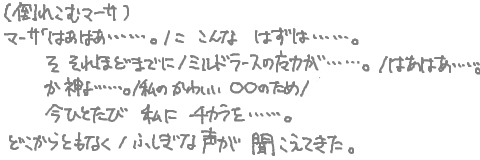 (倒れこむマーサ)
マーサ「はあはあ……。/こ こんな はずは……。
そ それほどまでに/ミルドラースの魔力が……。/はあはあ…。
か 神よ……。/私のかわいい ○○のため/
今ひとたび 私に チカラを……。
どこからともなく/ふしぎな声が 聞こえてきた。